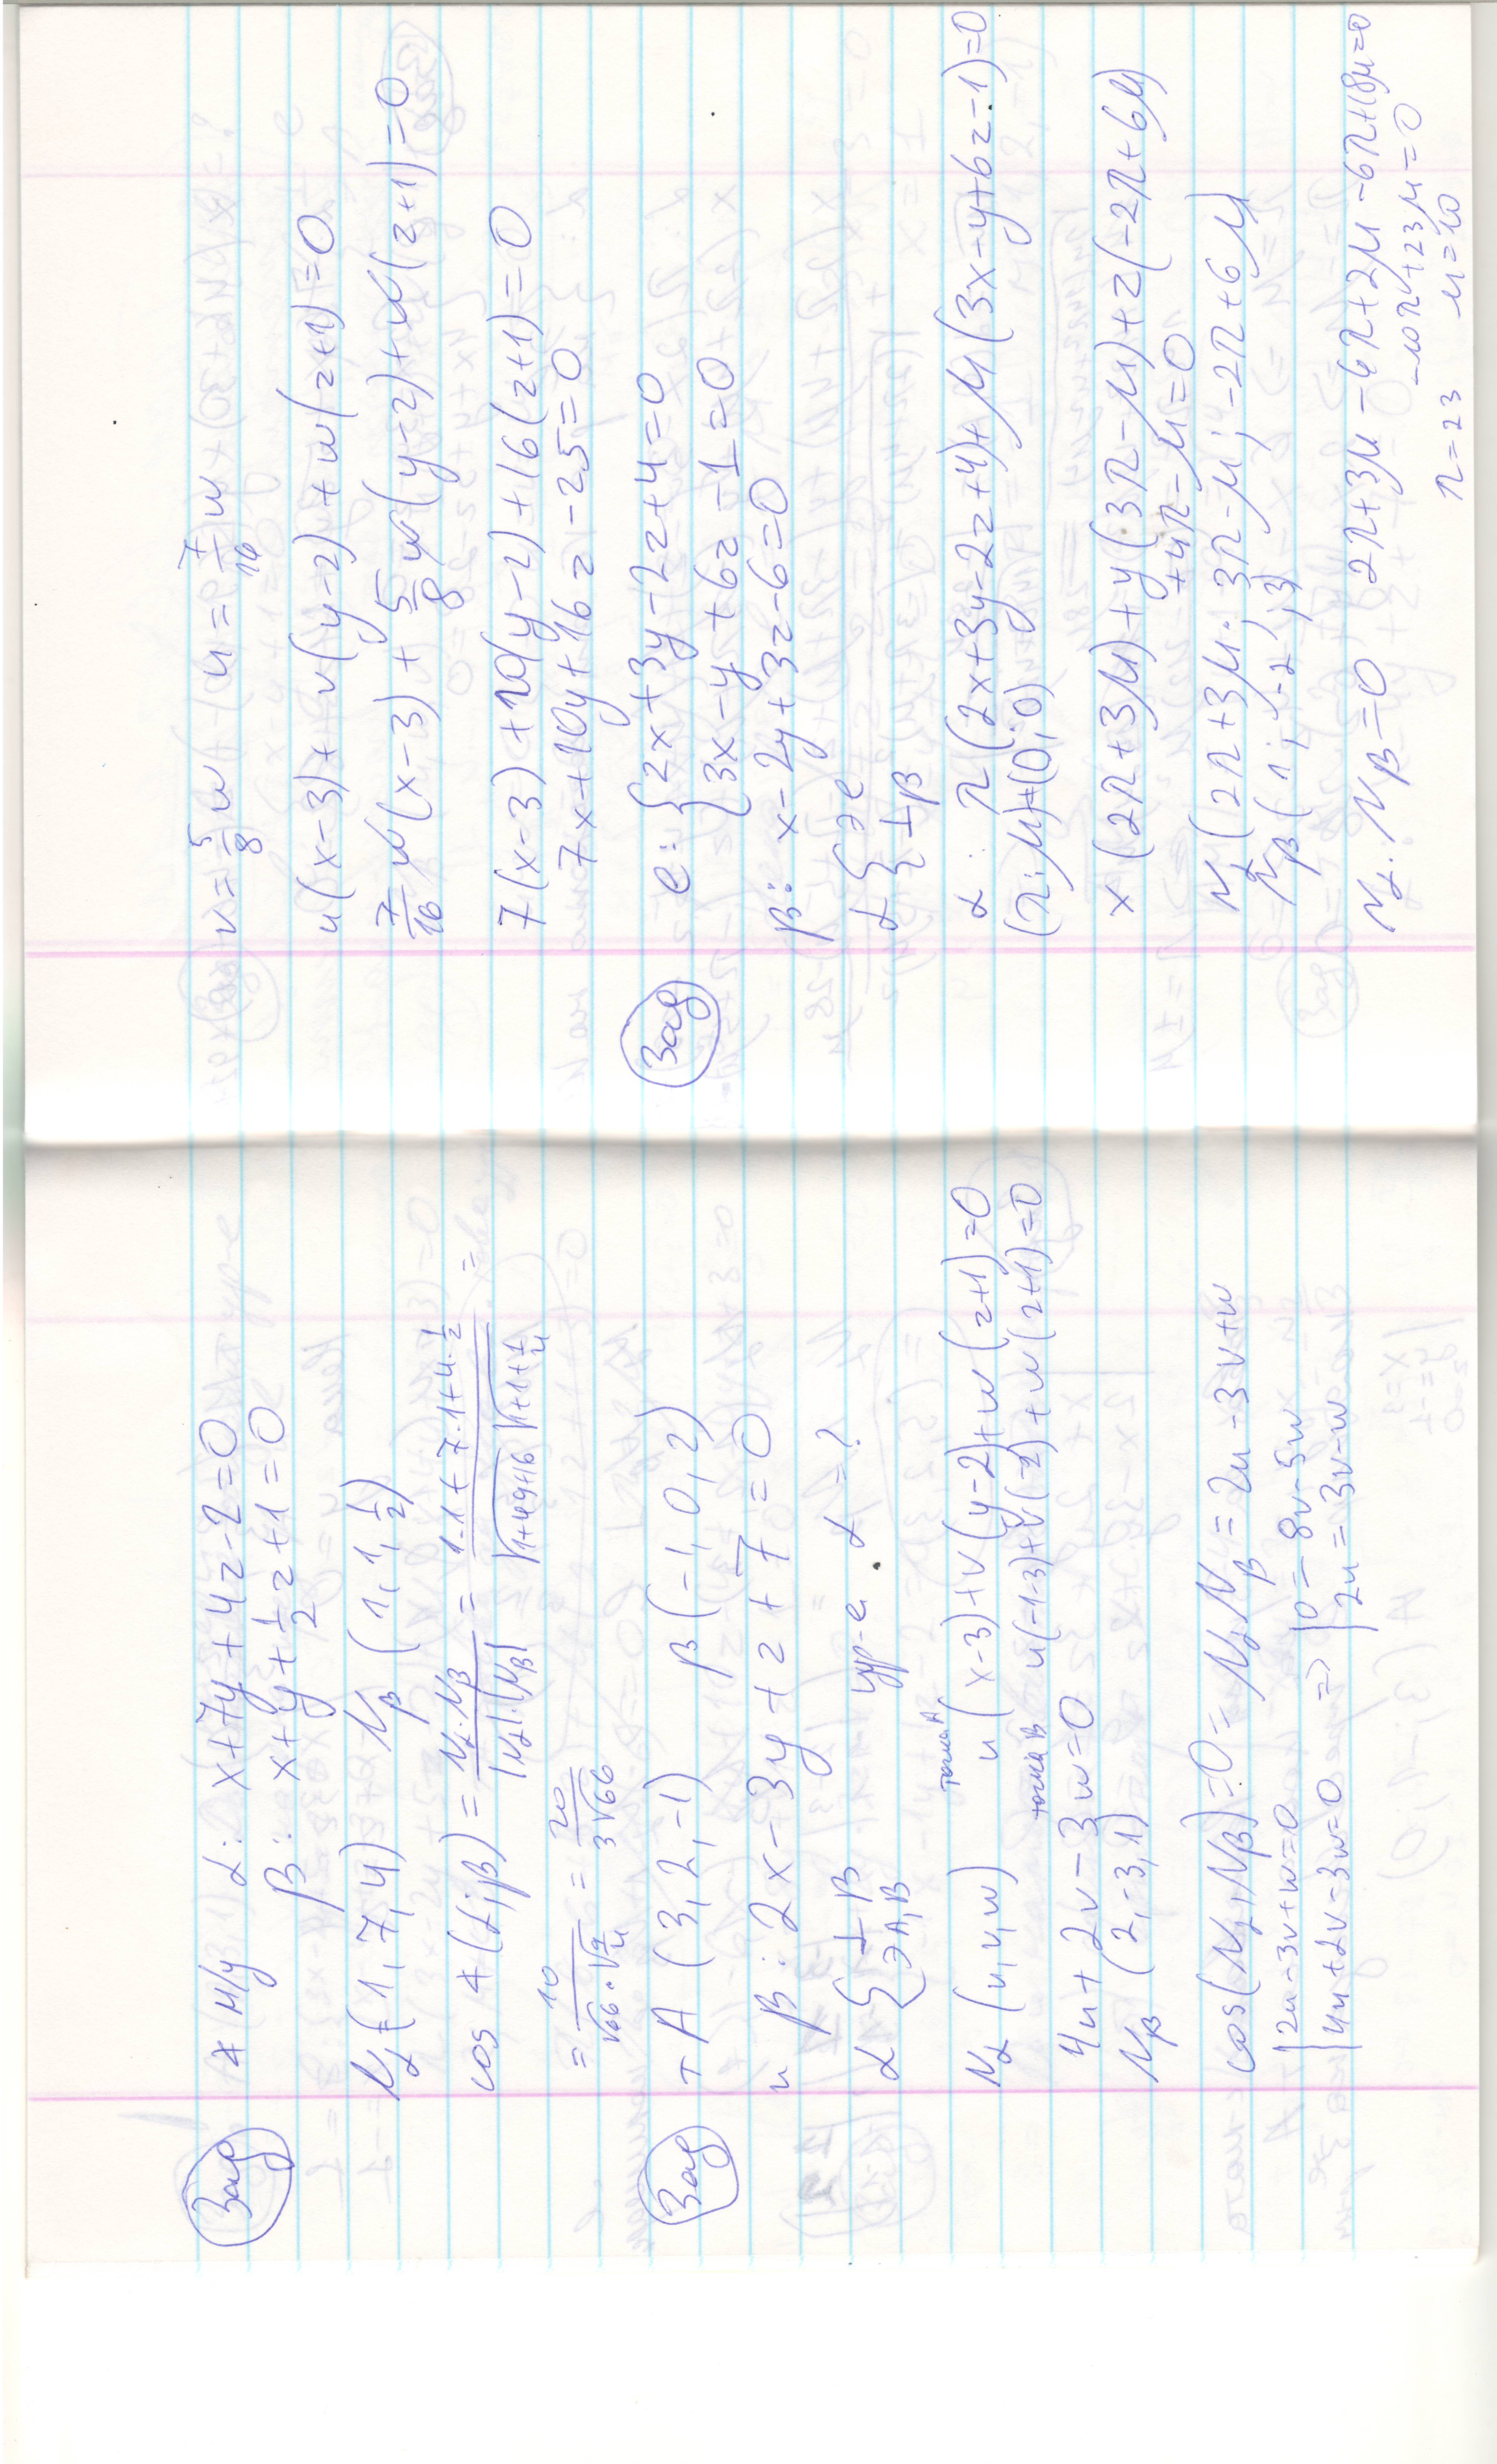 Зад ∢ м/у α: x+7y+4z-2=0
β: x+y+1/2 z+1=0
Nα(1,7,4) Nβ(1,1,1/2)
cos ∢(α;β) = Nα.Nβ / |Nα|.|Nβ| = 1.1+7.1+4.1/2 / √1+49+16 √1+1+1/4 =
= 10 / √66.√9/4 = 20 / 3√66
Зад т A(3,2,-1) β(-1,0,2)
и β: 2x-3y+z+7=0
α { ⊥β ур-е α=?
∋A,B
Nα(u,v,w) точка A u(x-3)+v(y-2)+w(z+1)=0
точка B u(-1-3)+v(-2)+w(z+1)=0
4u+2v-3w=0
Nβ(2,-3,1)
cos(Nα,Nβ)=0= NαNβ = 2u-3v+w
| 2u-3v+w=0 => | 0=8v-5w
| 4u+2v-3w=0 | 2u=3v-w
v=5/8 w u=7/16 w
u(x-3)+v(y-2)+w(z+1)=0
7/16 w(x-3)+5/8 w(y-2)+w(z+1)=0
7(x-3)+10(y-2)+16(z+1)=0
7x+10y+16z-25=0
Зад e: { 2x+3y-2z+4=0
3x-y+6z-1=0
β: x-2y+3z-6=0
α { ∋e
⊥β
α: λ(2x+3y-2z+4)+μ(3x-y+6z-1)=0
(λ;μ)≠(0;0)
x(2λ+3μ)+y(3λ-μ)+z(-2λ+6μ)
+4λ-μ=0
Nα(2λ+3μ; 3λ-μ; -2λ+6μ
Nβ(1;-2;3)
Nα.Nβ=0 2λ+3μ-6λ+2μ-6λ+18μ=0
-10λ+23μ=0
λ=23 μ=10